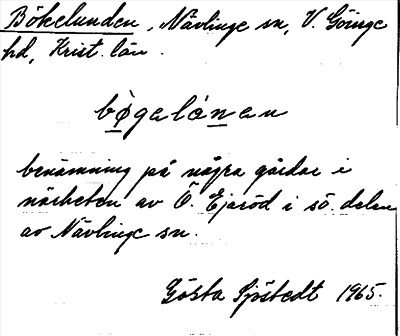 Bökelunden, Nävlinge sn, V. Göinge
hd, Krist. län.
bøgalónan
benämning på några gårdar i
närheten av Ö. Ejaröd i sö. delen
av Nävlinge sn.
Gösta Sjöstedt 1965.